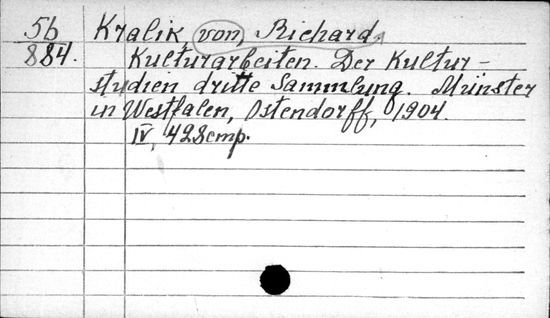 56 Kralik, von, Richard.
884. Kulturarbeiten. Der Kultur-
studien dritte Sammlung. Münster
in Westfalen, Ostendorff, 1904.
IV, 428 стр.